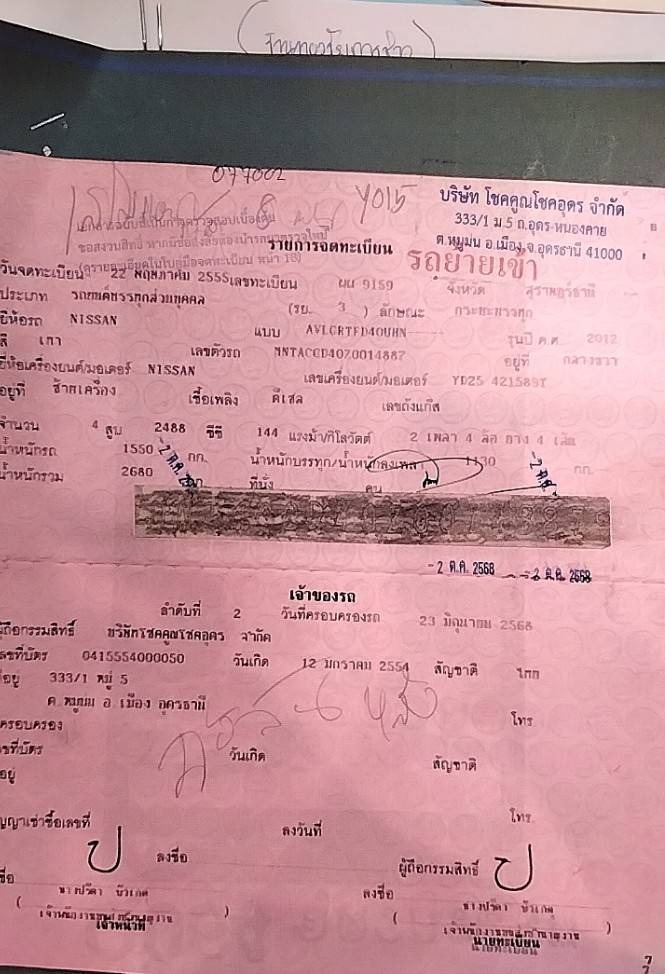 077002
Y015
บริษัท โชคคูณโชคอุดร จำกัด
333/1 ม.5 ถ.อุดร-หนองคาย
ต.หมูม่น อ.เมือง จ.อุดรธานี 41000
รายการจดทะเบียน
รถย้ายเข้า
วันจดทะเบียน 22 พฤษภาคม 2555 เลขทะเบียน ผผ 9159 จังหวัด สุราษฎร์ธานี
ประเภท รถยนต์บรรทุกส่วนบุคคล (รย. 3 ) ลักษณะ กระบะบรรทุก
ยี่ห้อรถ NISSAN แบบ AVLCRTFD40UHN รุ่นปี ค.ศ. 2012
สี เทา เลขตัวรถ MNTACCD40Z0014887 อยู่ที่ กลางขวา
ยี่ห้อเครื่องยนต์/มอเตอร์ NISSAN เลขเครื่องยนต์/มอเตอร์ YD25 421589T
อยู่ที่ ซ้ายเครื่อง เชื้อเพลิง ดีเซล เลขถังแก๊ส
จำนวน 4 สูบ 2488 ซีซี 144 แรงม้า/กิโลวัตต์ 2 เพลา 4 ล้อ ยาง 4 เส้น
น้ำหนักรถ 1550 กก. น้ำหนักบรรทุก/น้ำหนักลงเพลา 1130 กก.
น้ำหนักรวม 2680 ที่นั่ง คน
-2 ต.ค. 2568 -2 ต.ค. 2568
เจ้าของรถ
ลำดับที่ 2 วันที่ครอบครองรถ 23 มิถุนายน 2568
ผู้ถือกรรมสิทธิ์ บริษัทโชคคูณโชคอุดร จำกัด
เลขที่บัตร 0415554000050 วันเกิด 12 มกราคม 2554 สัญชาติ ไทย
ที่อยู่ 333/1 หมู่ 5
ต.หมูม่น อ.เมือง อุดรธานี
ผู้ครอบครอง โทร
เลขที่บัตร วันเกิด สัญชาติ
ที่อยู่
สัญญาเช่าซื้อเลขที่ ลงวันที่ โทร.
ลงชื่อ ผู้ถือกรรมสิทธิ์
ลงชื่อ ลงชื่อ
เจ้าหน้าที่ นายทะเบียน